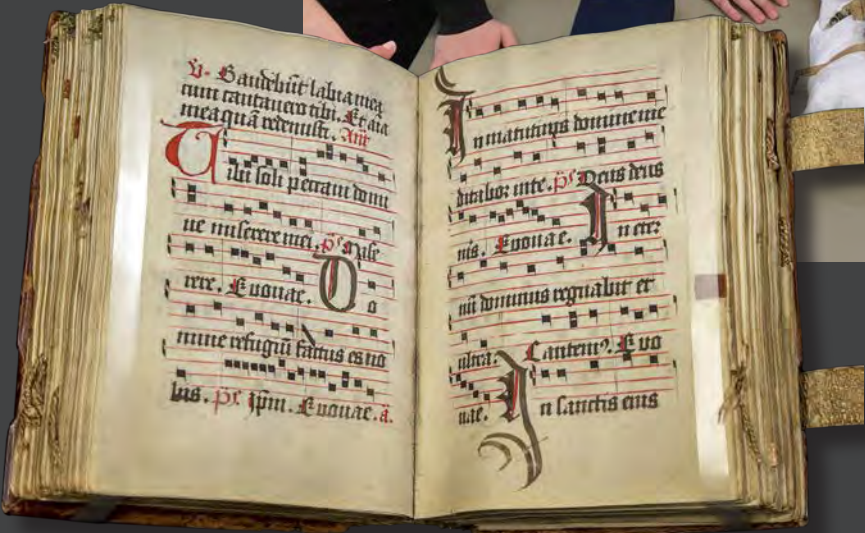 V. Gaudebūt labia mea
cum cantavero tibi. Et aīa
mea quā redemisti. Añ
Tibi soli peccavi domi
ne miserere mei. ps Mise
rere. Euouae. Do
mine refugiū factus es no
bis. ps Ipm. Euouae. a.
In matutinis domine me
ditabor in te. ps Deus deus
nis. Euouae. In eter
nū dominus regnabit et
ultra. Cantem⁹. Euo
uae. In sanctis eius